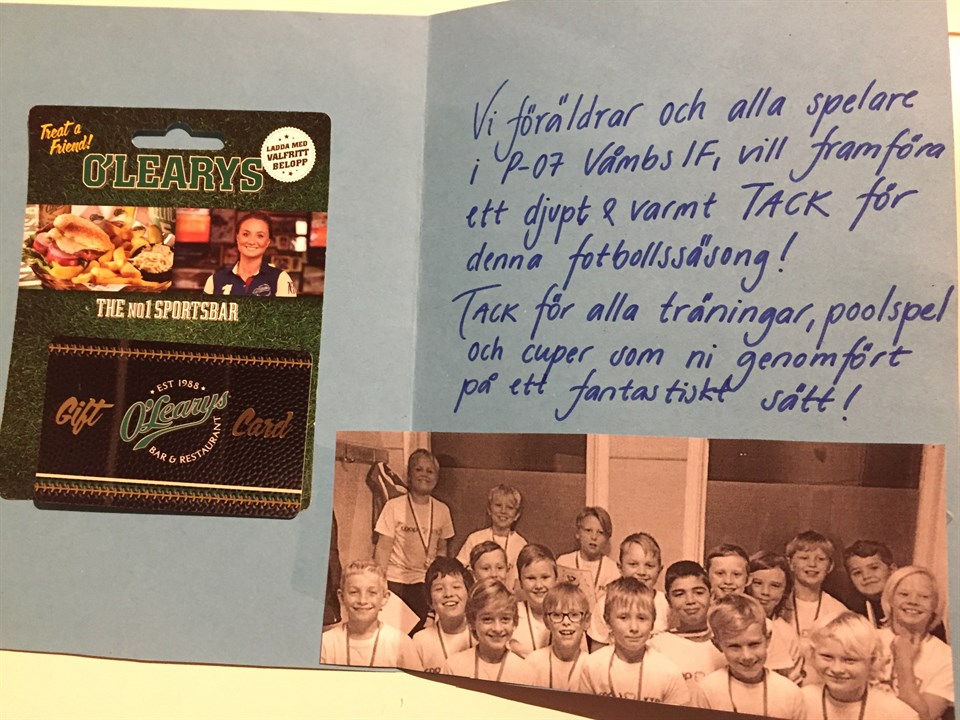 Treat a
Friend!
O'LEARYS
LADDA MED
VALFRITT
BELOPP
THE NO1 SPORTSBAR
Gift
EST 1988
O'Learys
BAR & RESTAURANT
Card
Vi föräldrar och alla spelare
i P-07 Våmbs IF, vill framföra
ett djupt & varmt TACK för
denna fotbollssäsong!
TACK för alla träningar, poolspel
och cuper som ni genomfört
på ett fantastiskt sätt!